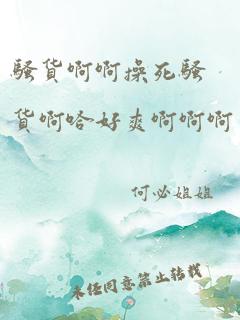 骚货啊啊操死骚
货啊哈好爽啊啊啊
何必姐姐
未经同意禁止转载